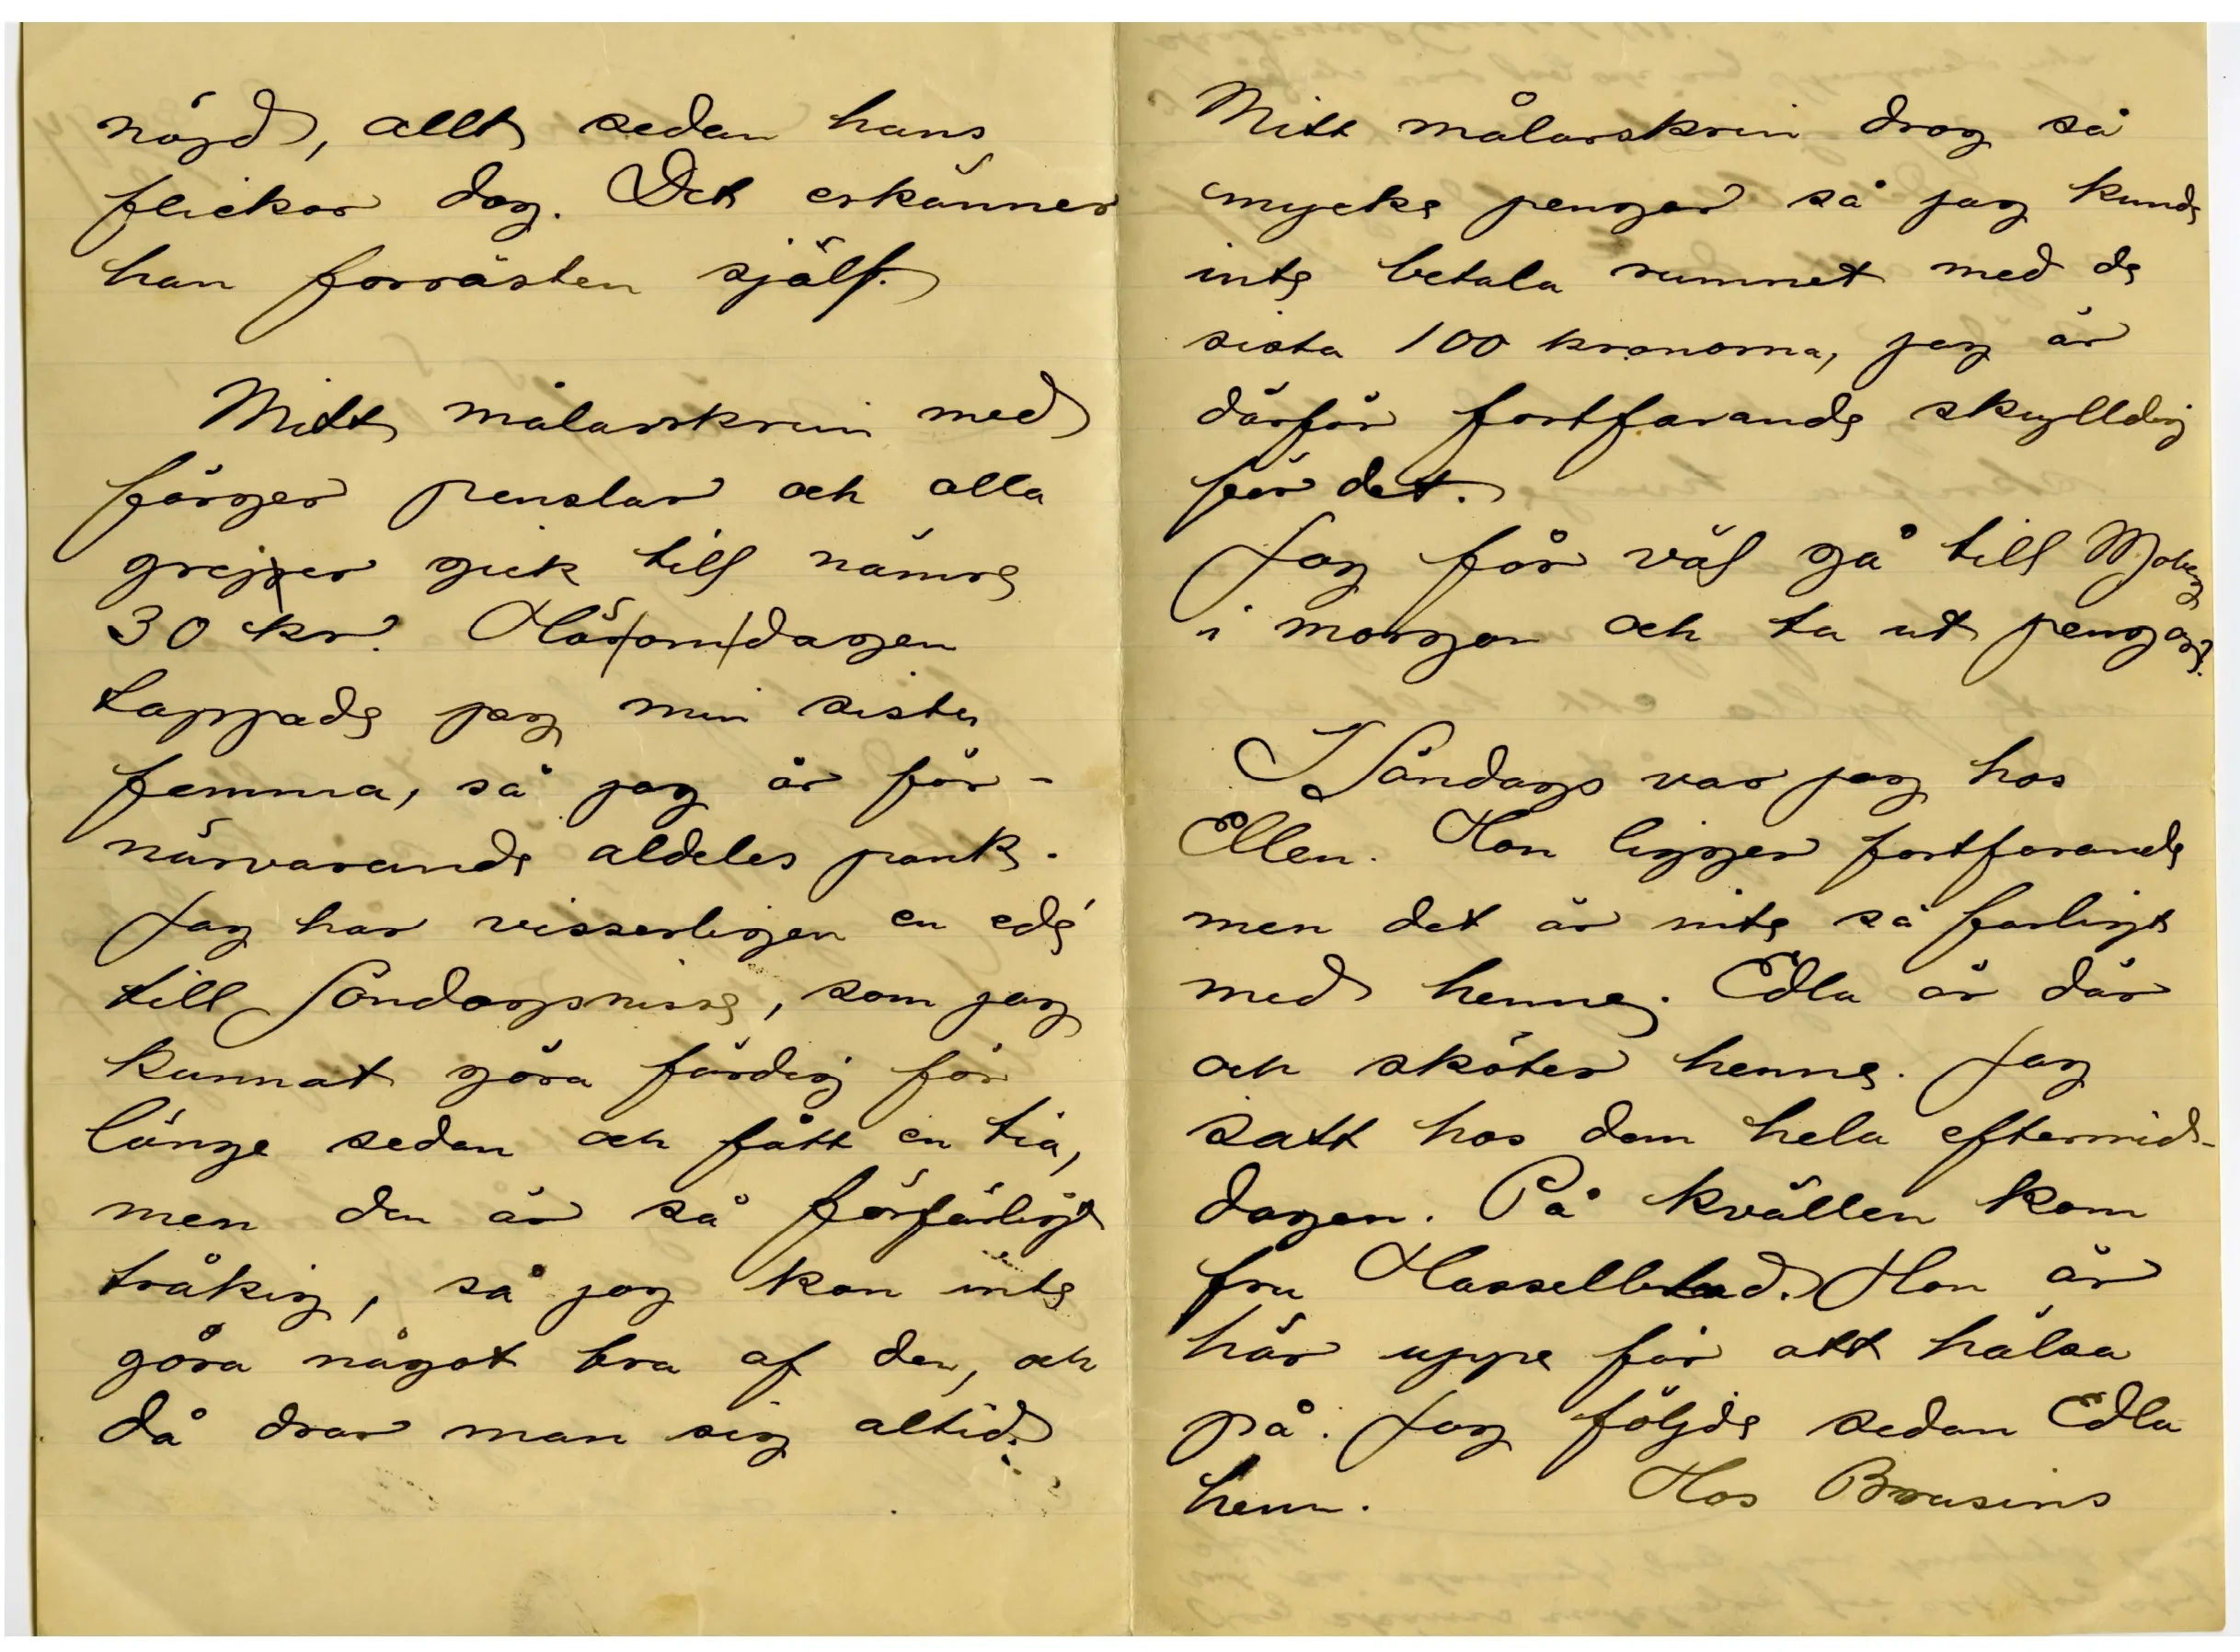 nöjd, allt sedan hans
flickor dog. Det erkänner
han forrästen själf.
Mitt målarskrin med
färger penslar och alla
grejer gick till närere
30 kr. Här/om/dagen
tappade jag min sista
femma, så jag är för-
närvarande aldeles pank.
Jag har visserligen en edé
till Söndagsnisse, som jag
kunnat göra färdig för
länge sedan och fått en tia,
men den är så förfärligt
tråkig, så jag kan inte
göra något bra af den, och
då drar man sig altid.
Mitt målarskrin drog så
mycke pengar så jag kunde
inte betala rummet med de
sista 100 kronorna, jag är
därför fortfarande skylldig
för det.
Jag får väl gå till Moberg
i morgon och ta ut pengar?
I Söndags var jag hos
Ellen. Hon ligger fortfarande
men det är inte så farligt
med henne. Edla är där
och sköter henne. Jag
satt hos dem hela eftermid-
dagen. På kvällen kom
fru Hasselblad. Hon är
här uppe för att hälsa
på. Jag följde sedan Edla
hem. Hos Brusins